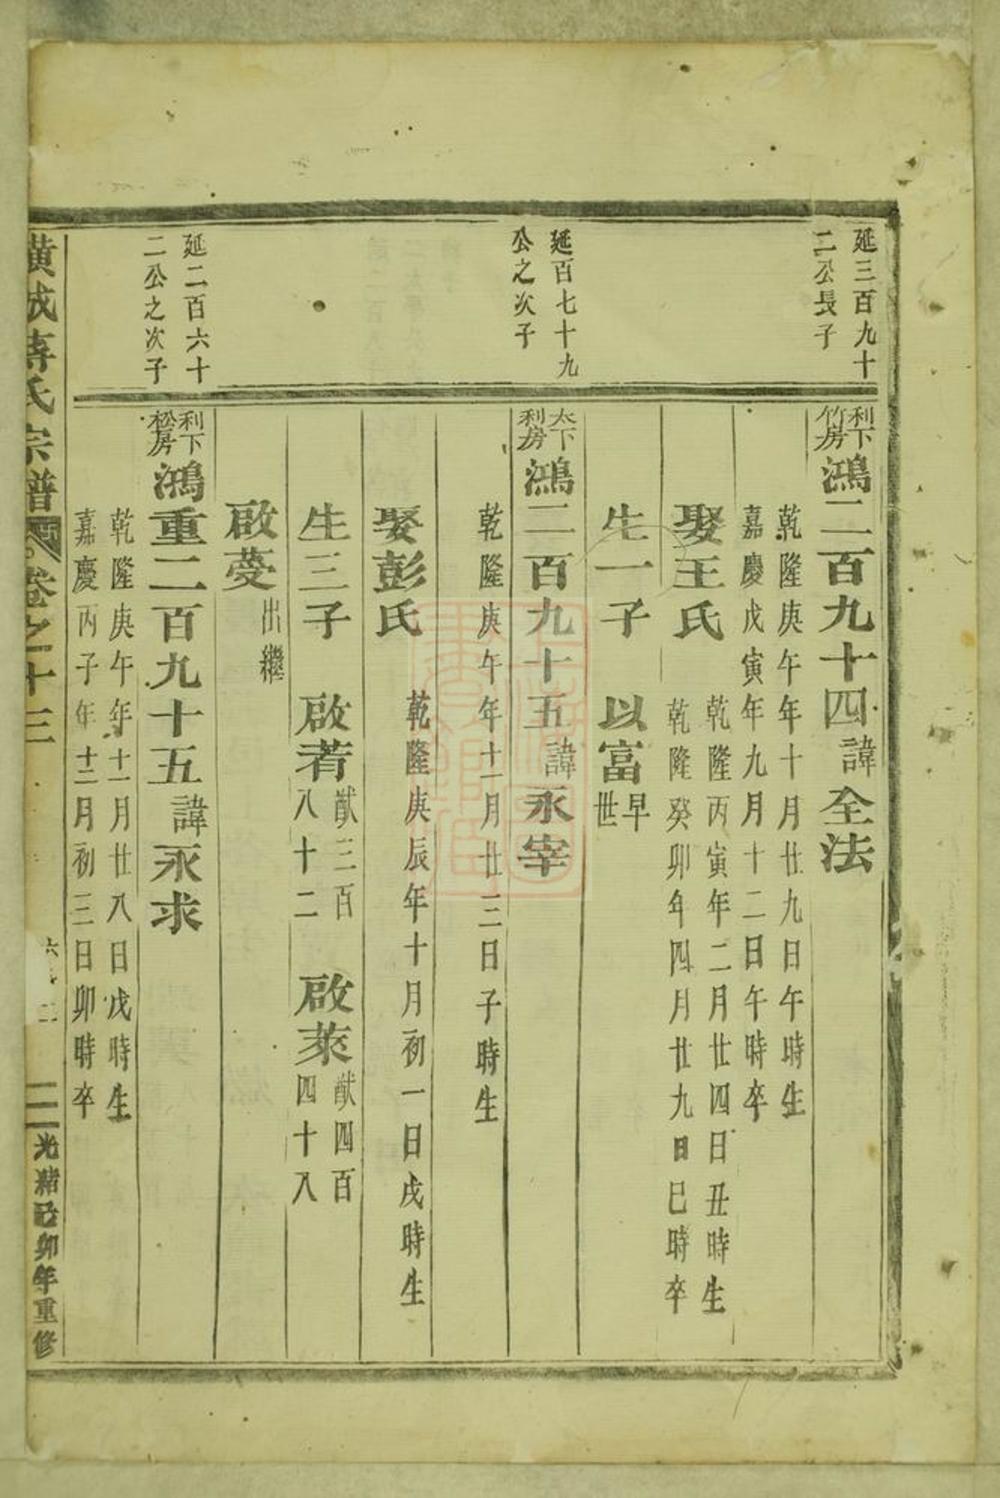 延三百九十
二公長子
利下
竹房
鴻二百九十四諱全法
乾隆庚午年十月廿九日午時生
嘉慶戊寅年九月十二日午時卒
娶王氏
乾隆丙寅年二月廿四日丑時生
乾隆癸卯年四月廿九日巳時卒
生一子 以富
早
世
延百七十九
公之次子
太下
利房
鴻二百九十五諱永宰
乾隆庚午年十一月廿三日子時生
娶彭氏
乾隆庚辰年十月初一日戌時生
生三子 啟若
猷三百
八十二
啟萊
猷四百
四十八
啟薆
出繼
延二百六十
二公之次子
利下
松房
鴻重二百九十五諱永求
乾隆庚午年十一月廿八日戌時生
嘉慶丙子年十二月初三日卯時卒
橫城蔣氏宗譜
卷之十三
光緒己卯年重修